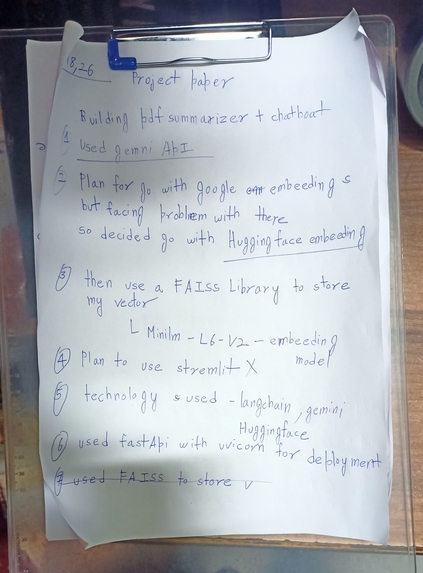 18,26
Project paper
Building pdf summarizer + chatboat
1 Used gemni ApI
2 Plan for go with google embeedings
but facing problem with there
so decided go with Huggingface embeeding
3 then use a FAISS Library to store
my vector
L Minilm - L6-V2 - embeeding
model
4 Plan to use stremlit X
5 technology s used - langchain, gemini
Huggingface
6 used fastApi with uvicorn for deployment
7 used FAISS to store v